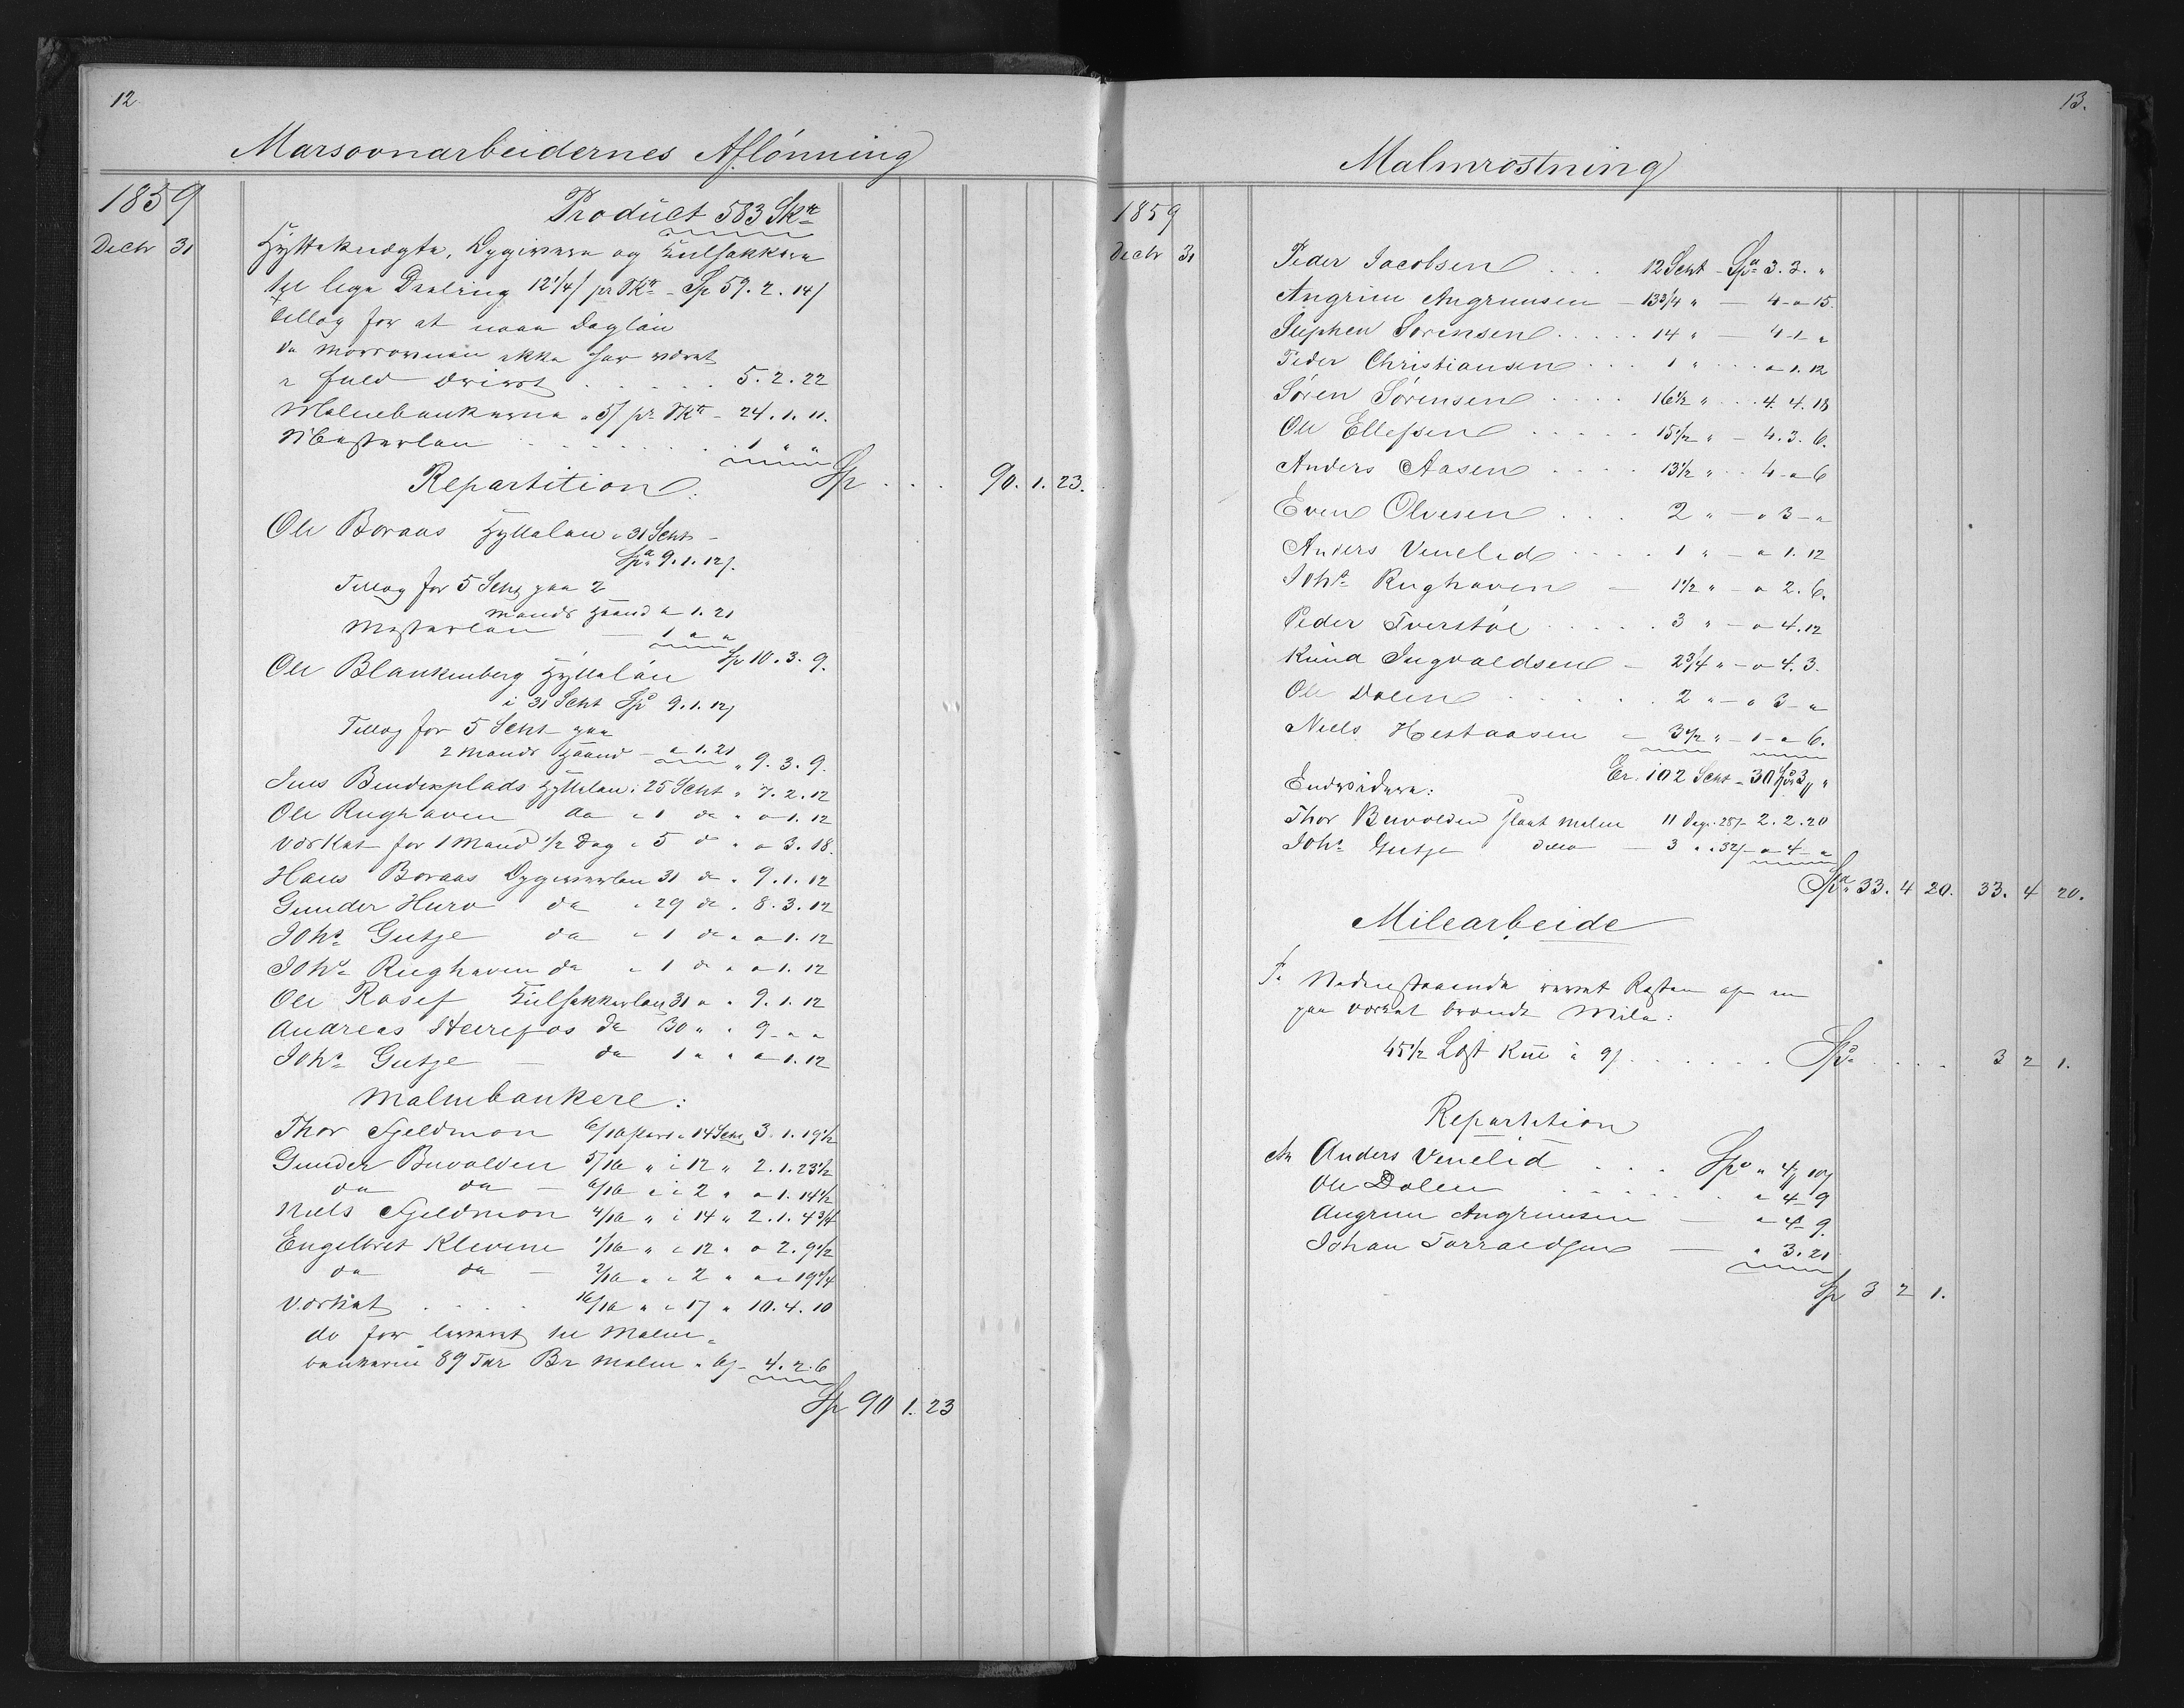 12
Masovnarbeidernes Aflönning
1859
Product 583 Skr
Decbr 31
Hytteknegte, Opgivere og Kulsækkere
til lige Deeling 12 1/4 / pr Skr - Sp 59. 2. 14 /
Tillæg for at naae Daglön
da Masovnen ikke har været
i fuld Drivt . . . . . 5. 2. 22
Malmbankerne a 5 / pr Skr - 24. 1. 11.
Mesterlön . . . . . . . 1 " "
Repartition: Sp . . . 90. 1. 23.
Ole Boraas Hyttelön i 31 Scht -
Spd 9. 1. 12 /.
Tillæg for 5 Scht paa 2
Mands Haand " 1. 21
Mesterlön — 1 " "
Sp 10. 3. 9.
Ole Blankenberg Hyttelön
i 31 Scht Spd 9. 1. 12 /
Tillæg for 5 Scht paa
2 Mands Haand - " 1. 21 " 9. 3. 9.
Jens Bendixplads Hyttelön i 25 Scht " 7. 2. 12
Ole Rughaven do i 1 do " " 1. 12
Værket for 1 Mand 1/2 Dag i 5 d " " 3. 18.
Hans Boraas Opgiverlön 31 do " 9. 1. 12
Gunder Huro do " 29 do " 8. 3. 12
Johs Gutze do " 1 do " " 1. 12
Johs Rughaven do " 1 do " " 1. 12
Ole Rosef Kulsækkerlön 31 " " 9. 1. 12
Andreas Heirefos do 30 " " 9 - " "
Johs Gutze — do 1 " " " 1. 12
Malmbankere:
Thor Fjeldmon 6/16 part i 14 Scht 3. 1. 19 1/2
Gunder Buvolden 5/16 " i 12 " 2. 1. 23 1/2
do do — 6/16 " i 2 " " 1. 14 1/2
Niels Fjeldmon 4/16 " i 14 " 2. 1. 4 3/4
Engelbret Klevene 1/16 " i 12 " " 2. 9 1/2
do do — 2/16 " i 2 " " " 19 1/4
Værket . . . . 16/16 " i 17 " 10. 4. 10
do for leveret til Malm-
bankerne 89 Tdr Br Malm a 6 / - 4. 2. 6
Sp 90 1. 23
13.
Malmröstning
1859
Decbr 31
Peder Jacobsen . . . 12 Scht - Spd 3. 3. "
Angrim Angrimsen — 13 3/4 " — 4 - " 15.
Stephen Sörensen . . . . . 14 " — 4 - 1 - "
Peder Christiansen . . . 1 " . . . " 1. 12
Sören Sörensen . . . . 16 1/2 " . . . 4. 4. 18
Ole Ellefsen . . . . . 15 1/2 " — 4. 3. 6.
Anders Aasen . . . . 13 1/2 " . . 4 - " 6
Even Olvesen . . . . 2 " — " 3 - "
Anders Venelid . . . . 1 " — " 1. 12
Johs Rughaven — 1 1/2 " — " 2. 6.
Peder Tverstöl . . . . . 3 " — " 4. 12
Knud Ingvaldsen — 2 3/4 " — " 4. 3.
Ole Dolen . . . . . . 2 " — " 3 - "
Niels Hestaasen — 3 1/2 " — 1 - " 6.
Er. 102 Scht - 30 Spd 3 " "
Endvidere:
Thor Buvolden slaat Malm 11 Dage 28 / - 2. 2. 20
Johs Gutze ditto — 3 " a 32 / - " 4 - "
Spd 33. 4 20. 33. 4 20.
Milearbeide
F. Nedenstaaende Resten af en
paa Værket brændt Mile:
45 1/2 Læst Kul a 9 / . . . . . . Spd . . . . 3 2 1.
Repartition
At Anders Venelid . . . Spd " 4 " 10 /
Ole Dolen . . . . . . . " 4 - 9
Angrim Angrimsen — " 4 - 9.
Johan Torraldsen — " 3. 21
Sp 3 2 1.